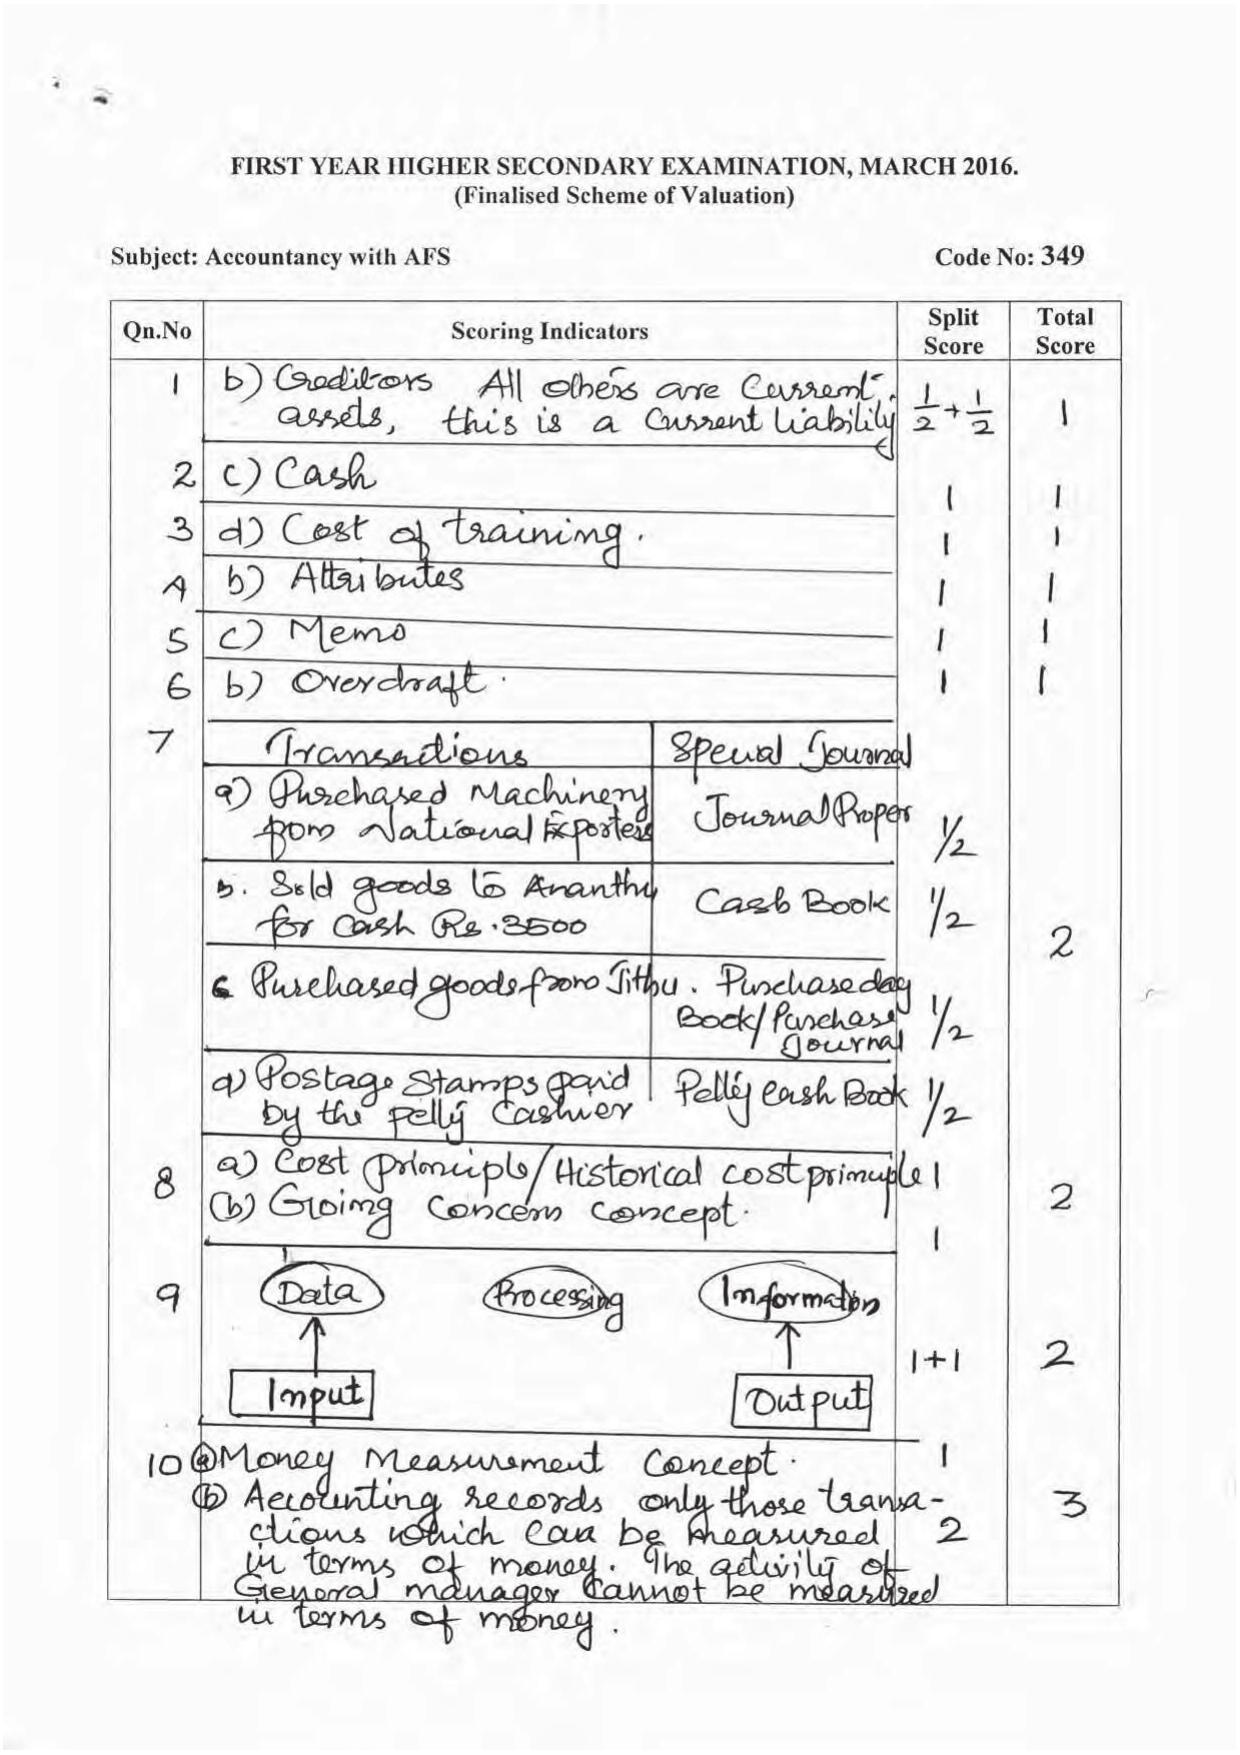 FIRST YEAR HIGHER SECONDARY EXAMINATION, MARCH 2016.
(Finalised Scheme of Valuation)
Subject: Accountancy with AFS Code No: 349
Qn.No Scoring Indicators Split Score Total Score
1 b) Creditors All others are Current assets, this is a Current liability 1/2 + 1/2 1
2 c) Cash 1 1
3 d) Cost of training. 1 1
4 b) Attributes 1 1
5 c) Memo 1 1
6 b) Overdraft. 1 1
7 Transactions Special Journal
a) Purchased Machinery Journal Proper
from National Exporters 1/2
b. Sold goods to Ananthu Cash Book 1/2
for Cash Rs. 3500 2
c Purchased goods from Jithu. Purchase day
Book/Purchase 1/2
Journal
d) Postage Stamps paid Petty cash Book 1/2
by the petty Cashier
8 a) Cost principle/Historical cost principle 1
(b) Going Concern concept. 1 2
9 Data Processing Information
1+1 2
Input Output
10 (a) Money Measurement Concept. 1
(b) Accounting records only those transa- 3
ctions which can be measured 2
in terms of money. The activity of
General manager cannot be measured
in terms of money.